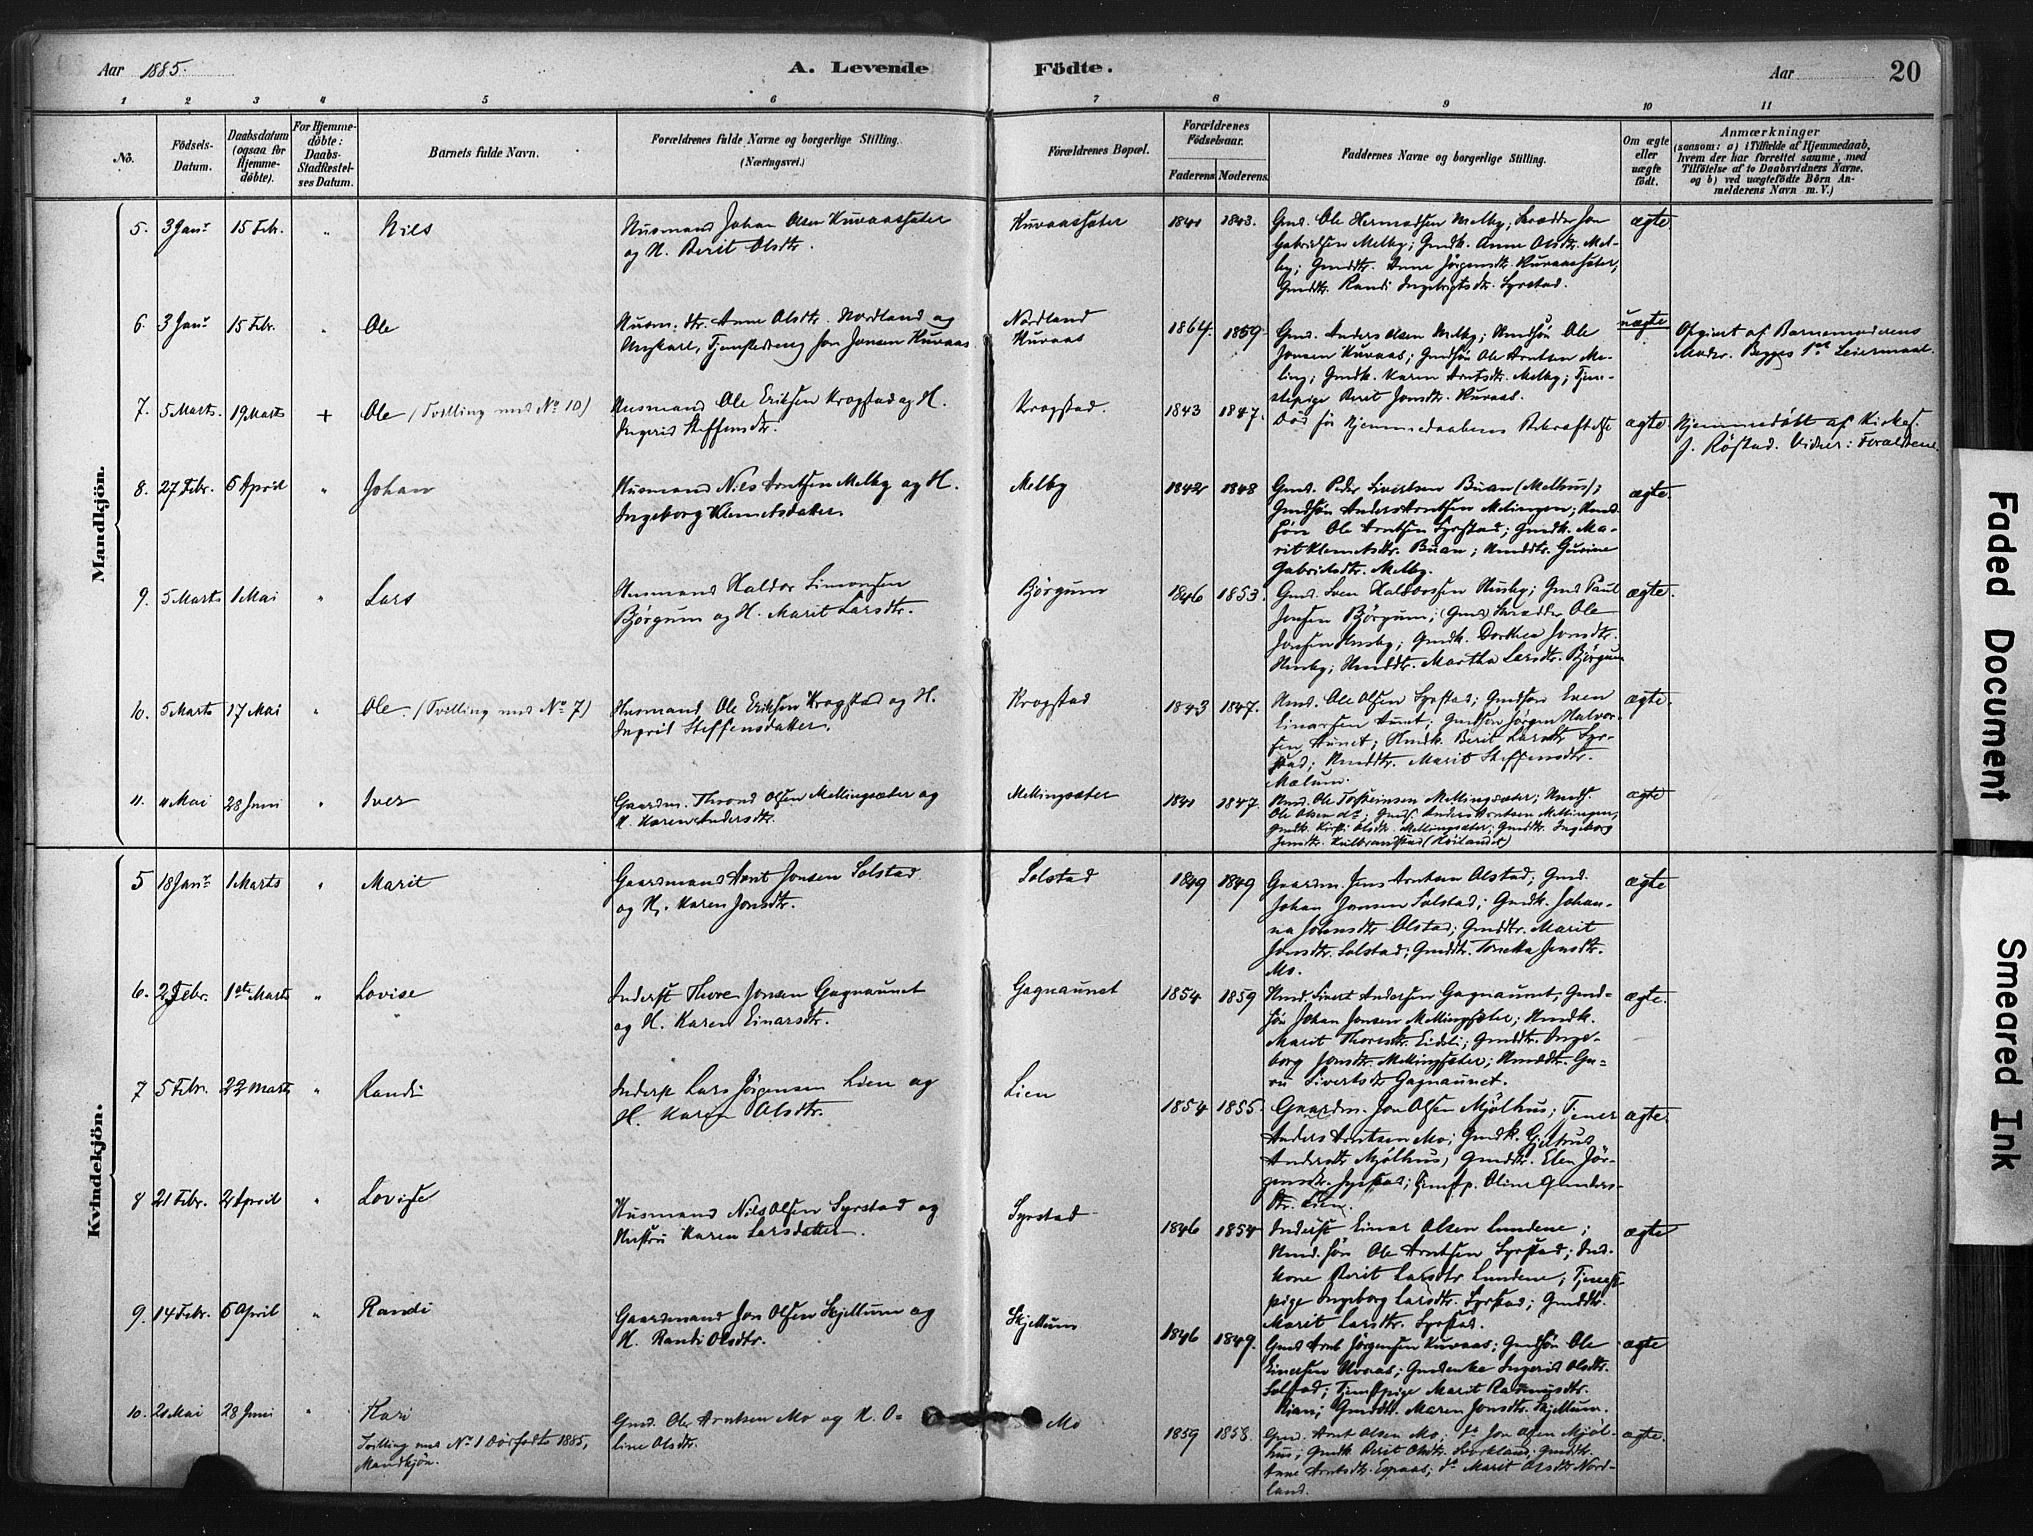 Aar 1885.
A. Levende Födte.
Aar
20
1 2 3 4 5 6 7 8 9 10 11
No.
Födsels-Datum.
Daabsdatum (ogsaa for Hjemme-döbte).
For Hjemme-döbte: Daabs-Stadfæstel-ses Datum.
Barnets fulde Navn.
Forældrenes fulde Navne og borgerlige Stilling. (Næringsvei.)
Forældrenes Bopæl.
Forældrenes Födselsaar.
Faderens Moderens.
Faddernes Navne og borgerlige Stilling.
Om ægte eller uægte födt.
Anmærkninger
(saasom: a) i Tilfælde af Hjemmedaab,
hvem der har forrettet samme, med
Tilföielse af to Daabsvidners Navne,
og b) ved uægtefödte Börn An-
melderens Navn m. V.)
Mandkjön.
5. 3 Janr 15 Feb. " Nils Husmand Johan Olsen Kuvaassæter Kuvaassæter 1841 1843. Gmd. Ole Hermodsen Melby; Skrædder Jon ægte
og H. Berit Olsdtr. Gabrielsen Melby; Gmdk. Anne Olsdtr. Mel-
by; Gmddtr. Anne Jørgensdtr. Kuvaassæter;
Gmddtr. Randi Ingebrigtsdtr. Syrstad.
6. 3 Janr 15 Febr. " Ole Husm. dtr. Anne Olsdtr. Nordland og Nordland 1864. 1859. Gmd. Anders Olsen Melby; Gmdsøn Ole uægte Opgivet af Barnemoderens
Ungkarl, Jon Jonsen Kuvaas Kuvaas Jonsen Kuvaas; Gmdsøn Ole Arntsen Me- Moder. Begges 1ste Leiermaal.
ling; Gmdk. Karen Arntsdtr. Melby; Tjene-
stepige Berit Jonsdtr. Kuvaas.
7. 5 Marts. 19 Marts + Ole (Tvilling med No 10) Husmand Ole Eriksen Krogstad og H. Krogstad. 1843 1847. Død før Hjemmedaabens Bekræftelse ægte. Hjemmedøbt af Kirkes.
Ingerid Steffensdtr. J. Røstad. Vidner: Forældrene.
8. 27 Febr. 5 April " Johan Husmand Nils Arntsen Melby og H. Melby 1842 1848 Gmd. Peder Sivertsen Buan (Melhus); ægte.
Ingeborg Klemetsdatter. Gmdsøn Anders Arntsen Melingen; Hmd
søn Ole Arntsen Syrstad; Gmdk. Ma-
rit Klemetsdtr. Buan; Hmddtr. Gurine
Gabrielsdtr. Melby.
9. 5 Marts 1 Mai " Lars Husmand Haldor Simonsen Børgum 1846 1853. Gmd. Sven Haldorsen Husby; Gmd Paul ægte.
Børgum og H. Marit Larsdtr. Jonsen Børgum; Skrædder Ole
Jonsen Husby; Gmdk. Dorthea Jonsdtr.
Husby; Hmddtr. Martha Larsdtr. Børgum
10. 5 Marts 17 Mai " Ole. (Tvilling med No 7) Husmand Ole Eriksen Krogstad og H. Krogstad 1843 1847. Hmd. Ole Olsen Syrstad; Gmdsøn Even ægte.
Ingrid Steffensdatter. Einarsen Aunet; Gmdsøn Jørgen Halvor-
sen Aunet; Hmdk. Berit Larsdtr Syr-
stad; Hmddtr. Marit Steffensdtr.
Mælum.
11. 11 Mai 28 Juni " Iver Gaardm. Thrond Olsen Mellingsæter og Mellingsæter 1841 1847. Hmd. Ole Torsteinsen Mellingsæter; Hmds. ægte
H. Karen Andersdtr. Ole Olsen do; Gmds. Anders Arntsen Mellingen;
Gmdk. Kirsti Olsdtr. Mellingsæter; Gmddtr. Ingeborg
Jensdtr. Kulbrandstad
Kvindekjön.
5 18 Janr 1 Marts " Marit Gaardmand Arnt Jonsen Solstad Solstad 1849 1849 Gaardm. Jens Arntsen Olstad; Gmd. ægte
og H. Karen Jonsdtr. Johan Jonsen Solstad; Gmdk. Johan-
na Johnsdtr Olstad; Gmddtr. Marit
Jonsdtr. Solstad; Gmddtr. Jonsdtr.
Mo.
6. 2 Febr. 1ste Marts " Lovise Inderst Thore Jonsen Gagnaunet Gagnaunet 1854 1859 Hmd. Sivert Andersen Gagnaunet; Gmd- ægte.
og H. Karen Einarsdtr. søn Johan Jonsen Mellingsæter; Hmdk.
Marit Thoresdtr. Eidsli; Gmddtr. Inge-
borg Jonsdtr. Mellingsæter; Hmddtr. Gu-
ru Sivertsdtr Gagnaunet.
7 5 Febr. 22 Marts " Randi Inderst Lars Jørgensen Lien og Lien 1854 1855. Gaardm. Jon Olsen Mjølhus; Tjener ægte.
H. Karen Olsdtr. Anders Arntsen Mo; Gmdk. Gjertrud
Andersdtr Mjølhus; Gmddtr. Elen Jør-
gensdtr. Syrstad; Tjenstp. Oline Gunders-
dtr. Lien.
8 21 Febr. 2 April " Lovise Husmand Nils Olsen Syrstad og Syrstad 1846 1854 Inderst Einar Olsen Lundene; ægte
Hustru Karen Larsdatter. Hmd. søn Ole Arntsen Syrstad; Ind-
kone Berit Larsdtr Lundene; Tjeneste-
pige Ingeborg Larsdtr. Syrstad; Gmddtr.
Marit Larsdtr. Syrstad.
9. 14 Febr. 5 April " Randi Gaardmand Jon Olsen Skjellum og Skjellum 1846 1849. Gmd Arnt Jørgensen Kuvaas; Gmdsøn Ole ægte
H. Randi Olsdtr. Einersen Hvaas; Gmdenke Ingerid Olsdtr.
Solstad; Tjenstpige Marit Rasmusdtr.
Rian; Gmddtr. Maren Jonsdtr. Skjellum.
10. 20 Mai 28 Juni " Kari Gmd. Ole Arntsen Mo og H. O- Mo 1859 1858. Gmd. Arnt Olsen Mo; do Jon Olsen Mjøl- ægte.
Tvilling med No 1 Dødfødte 1885, line Olsdtr. hus; Gmdk. Berit Olsdtr. Storkland; Gmddtr.
Mandkjøn. Anne Arntsdtr. Espaas; do Marit Olsdtr Nord-
land.
Faded Document
Smeared Ink